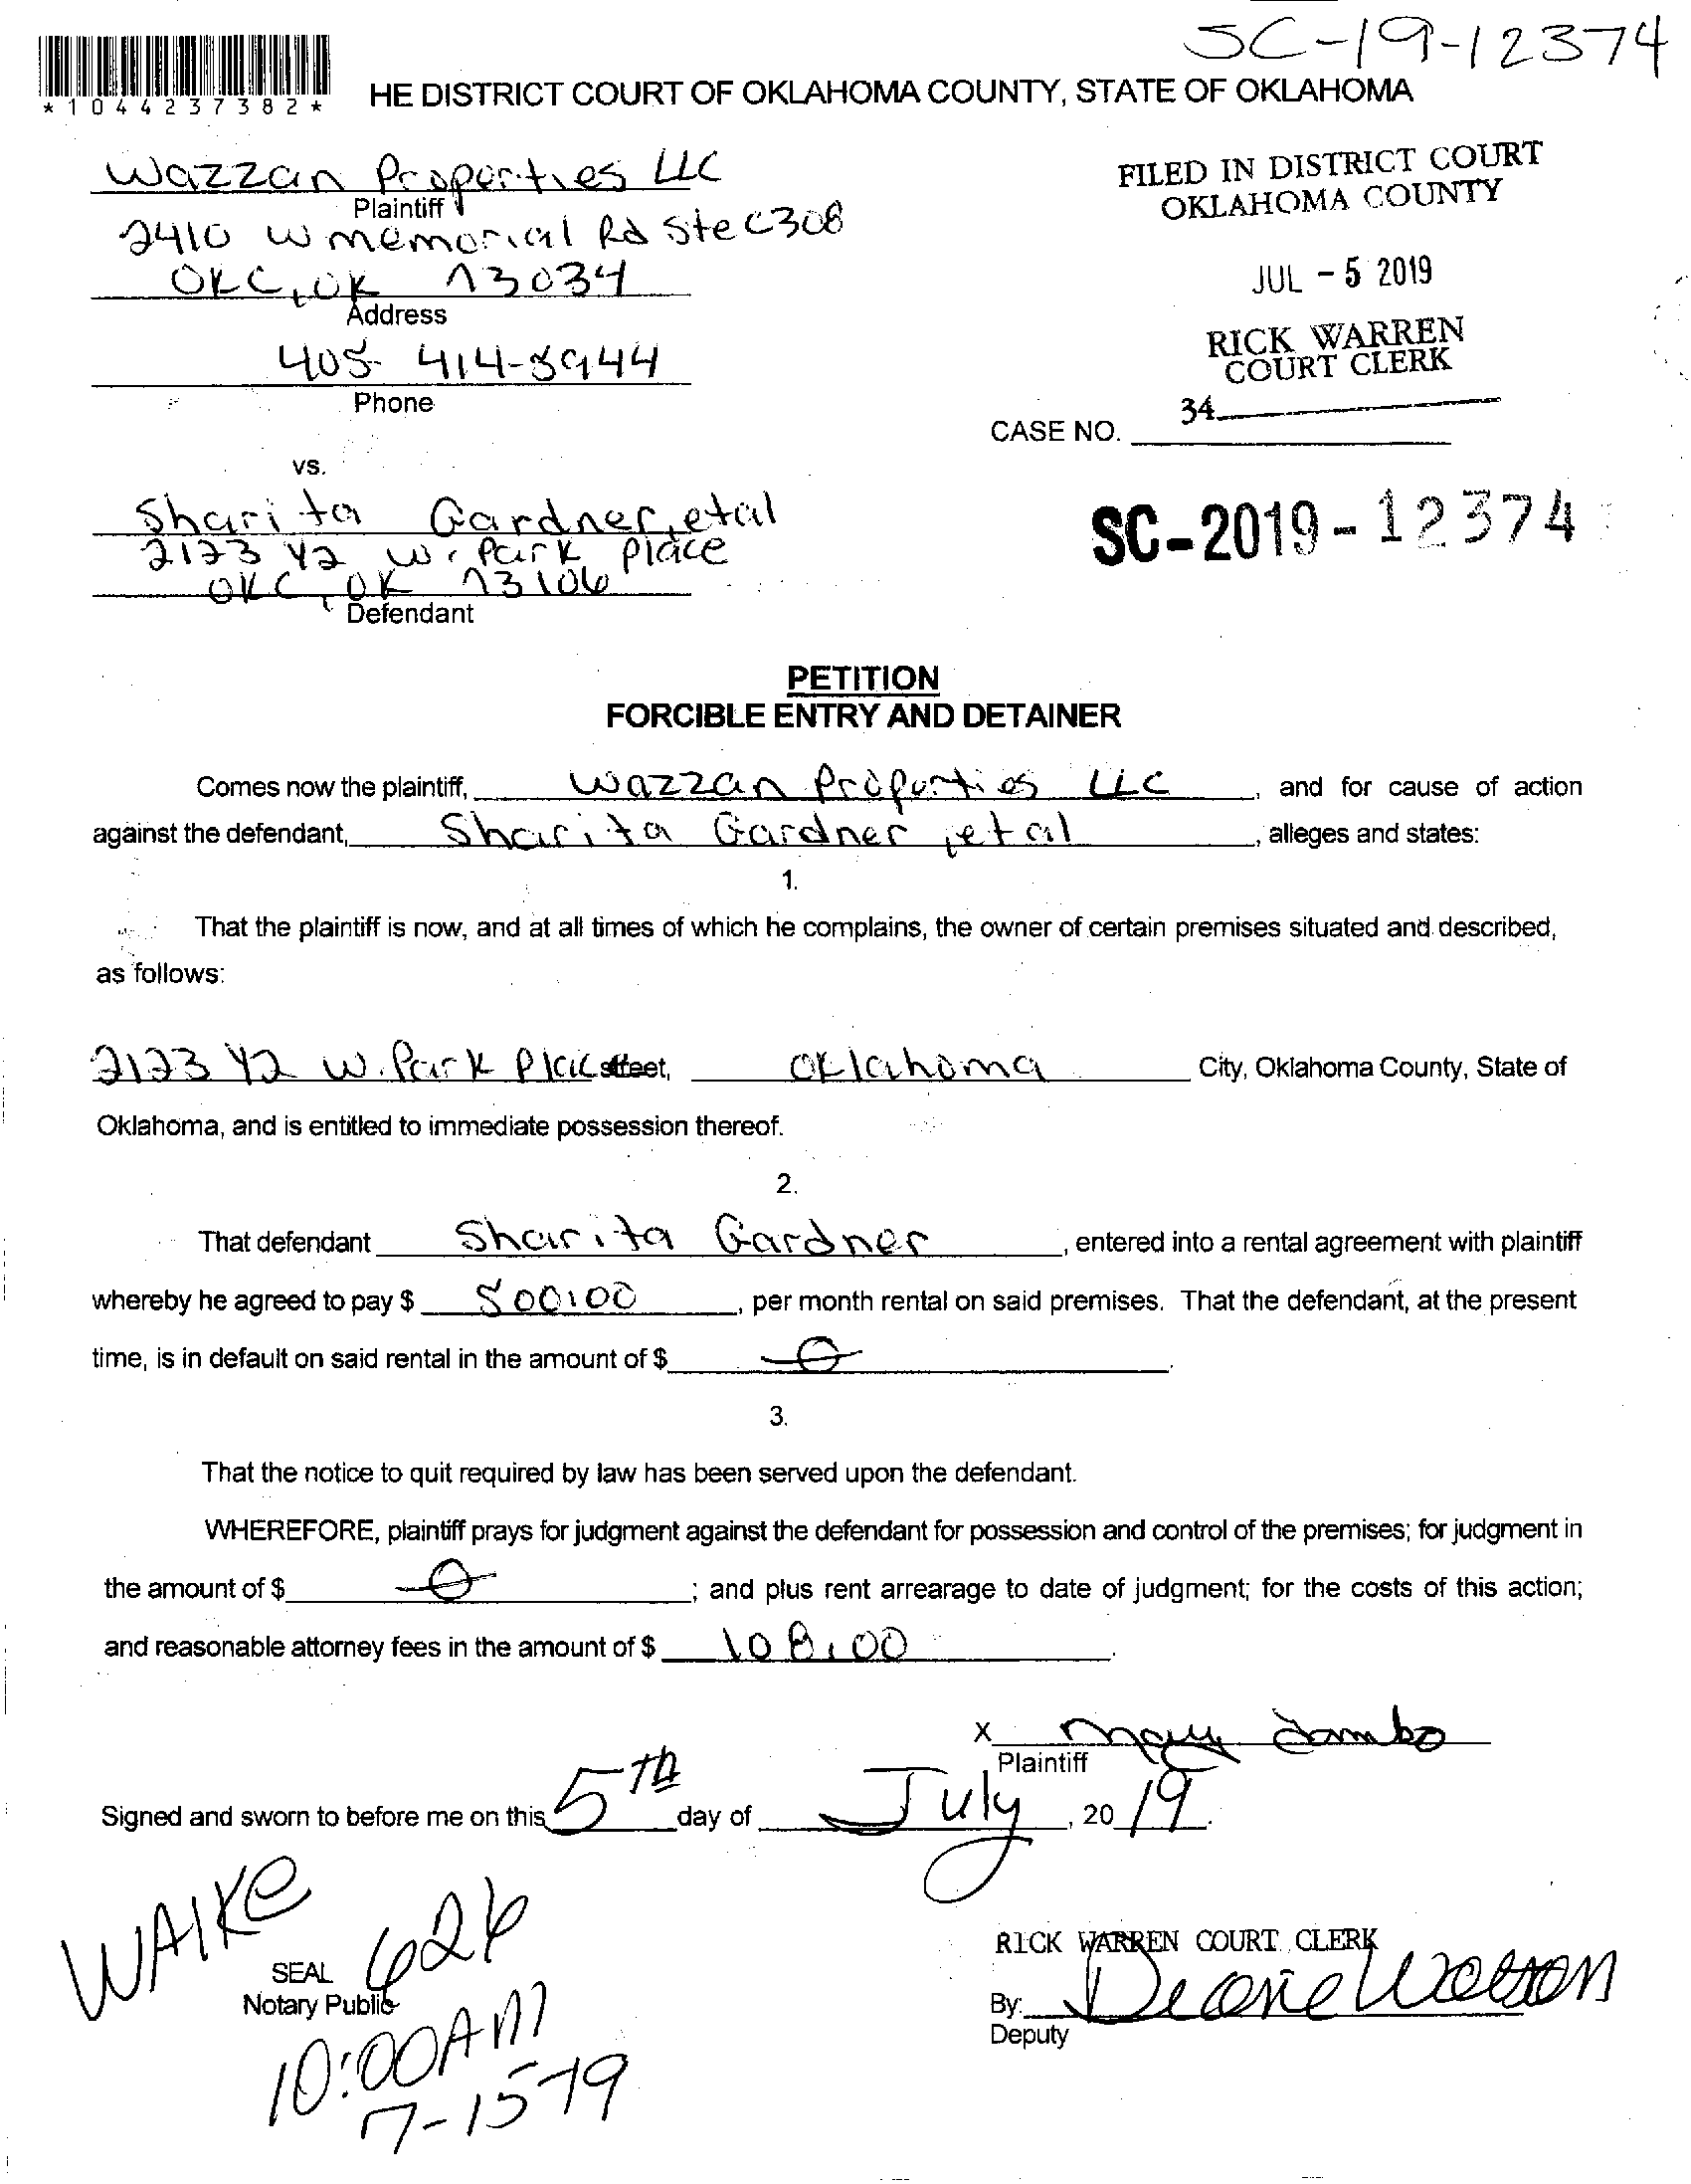 SC-19-12374
*1044237382*
HE DISTRICT COURT OF OKLAHOMA COUNTY, STATE OF OKLAHOMA
Wazzan Properties LLC
Plaintiff
2410 W memorial Rd Ste C308
OKC, OK 73034
Address
405- 414-8944
Phone
FILED IN DISTRICT COURT
OKLAHOMA COUNTY
JUL - 5 2019
RICK WARREN
COURT CLERK
34
CASE NO.
vs.
Sharita Gardner, etal
2123 1/2 W. Park Place
OKC, OK 73106
Defendant
SC-2019-12374
PETITION
FORCIBLE ENTRY AND DETAINER
Comes now the plaintiff, Wazzan Properties LLC, and for cause of action
against the defendant, Sharita Gardner, etal, alleges and states:
1.
That the plaintiff is now, and at all times of which he complains, the owner of certain premises situated and described,
as follows:
2123 1/2 W. Park Place street, Oklahoma City, Oklahoma County, State of
Oklahoma, and is entitled to immediate possession thereof.
2.
That defendant Sharita Gardner, entered into a rental agreement with plaintiff
whereby he agreed to pay $ 500.00, per month rental on said premises. That the defendant, at the present
time, is in default on said rental in the amount of $ 0.
3.
That the notice to quit required by law has been served upon the defendant.
WHEREFORE, plaintiff prays for judgment against the defendant for possession and control of the premises; for judgment in
the amount of $ 0; and plus rent arrearage to date of judgment; for the costs of this action;
and reasonable attorney fees in the amount of $ 108.00.
X Mary
Plaintiff
Signed and sworn to before me on this 5TH day of July, 20 19.
WAIKE
626
SEAL
Notary Public
10:00AM
7-15-19
RICK WARREN COURT CLERK
By: Deane Watson
Deputy